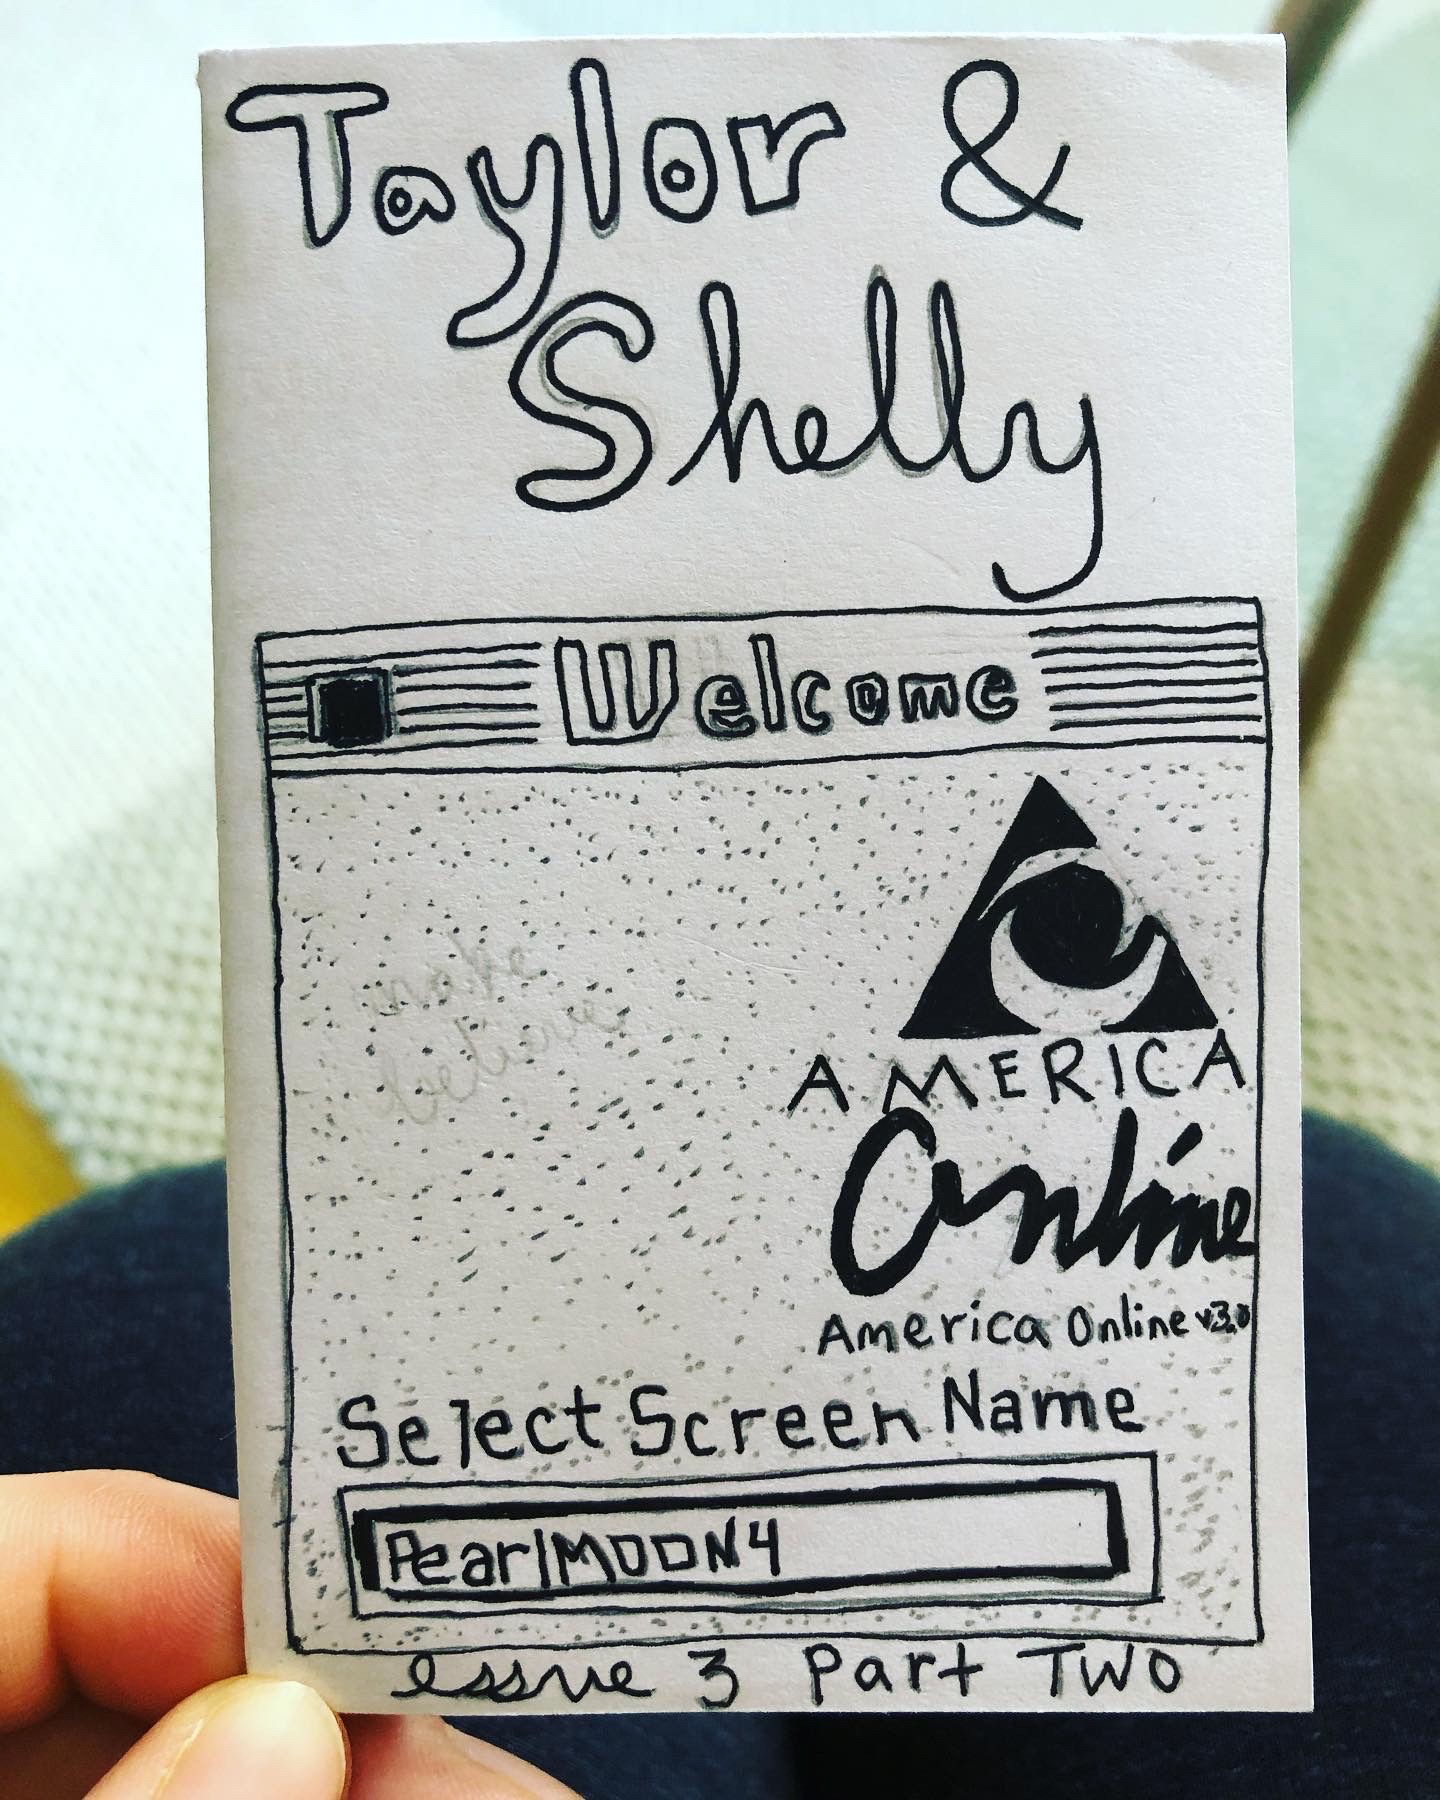 Taylor &
Shelly
Welcome
make
believe
AMERICA
Online
America Online v3.0
Select Screen Name
PearlMOON4
essue 3 Part Two